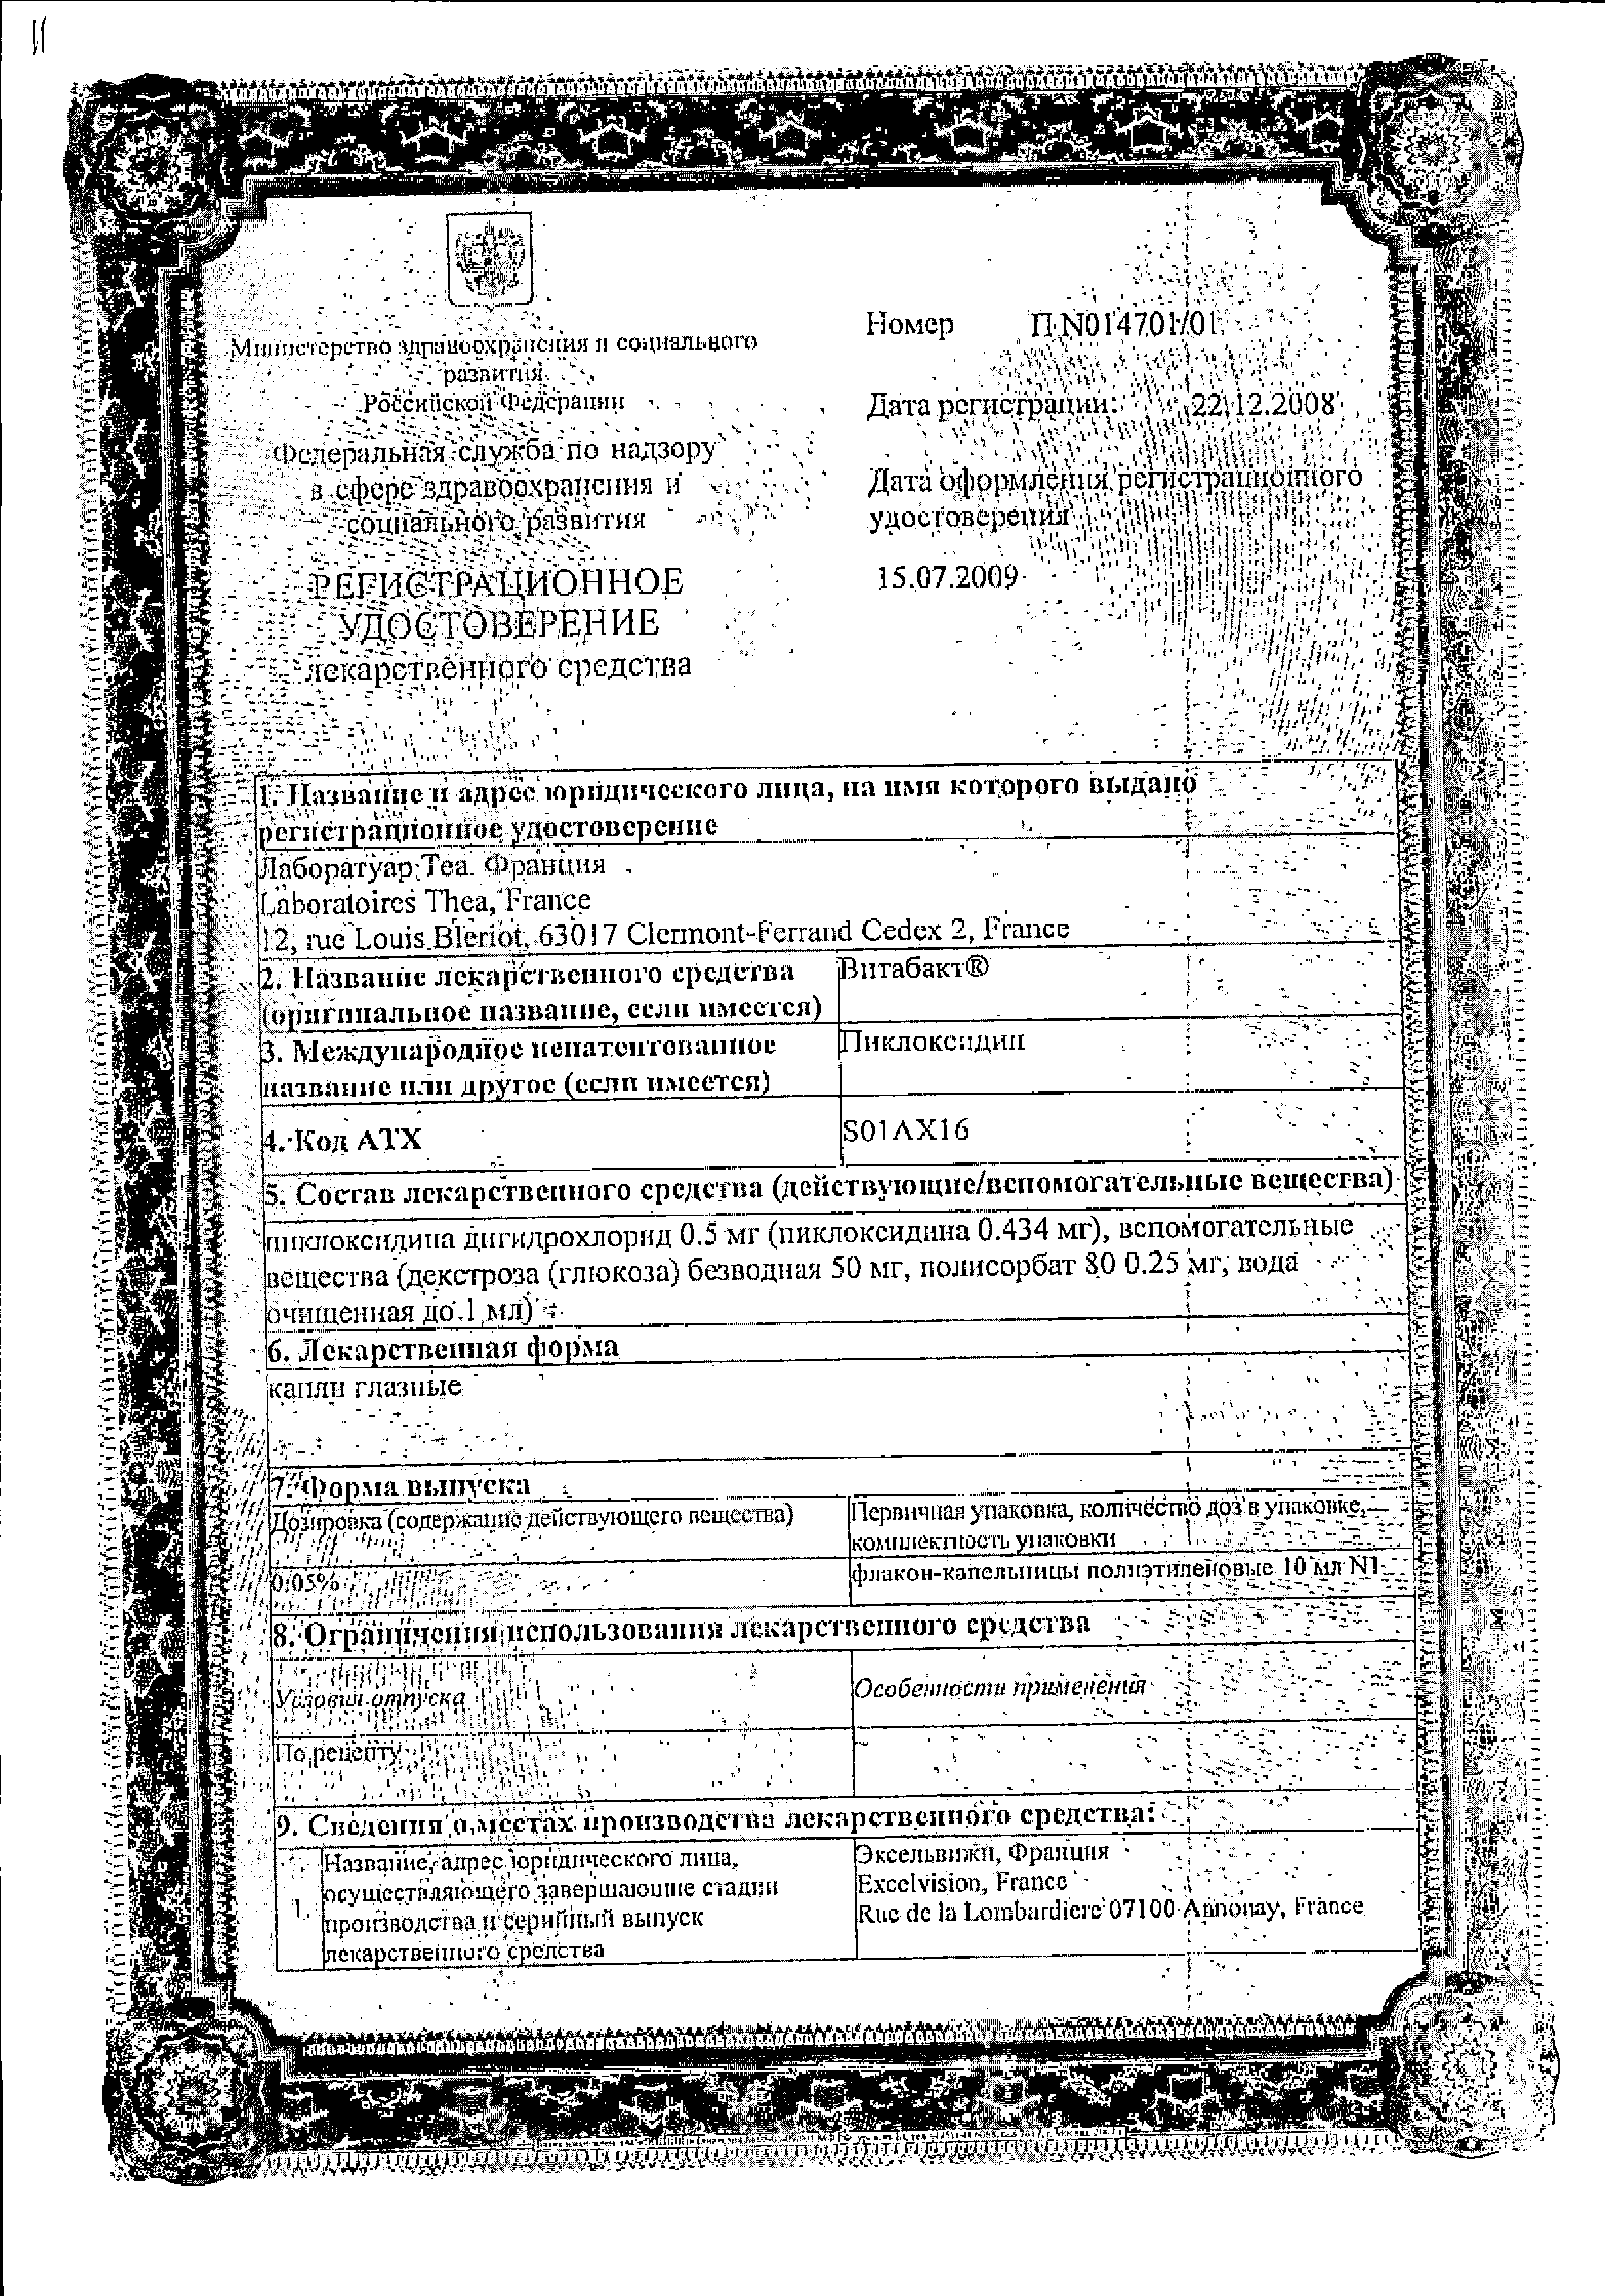 Министерство здравоохранения и социального
развития
Российской Федерации
Федеральная служба по надзору
в сфере здравоохранения и
социального развития
РЕГИСТРАЦИОННОЕ
УДОСТОВЕРЕНИЕ
лекарственного средства
Номер П N014701/01
Дата регистрации: 22.12.2008
Дата оформления регистрационного
удостоверения
15.07.2009
1. Название и адрес юридического лица, на имя которого выдано
регистрационное удостоверение
Лаборатуар Теа, Франция
Laboratoires Thea, France
12, rue Louis Bleriot, 63017 Clermont-Ferrand Cedex 2, France
2. Название лекарственного средства
(оригинальное название, если имеется)
Витабакт®
3. Международное непатентованное
название или другое (если имеется)
Пиклоксидин
4. Код АТХ
S01AX16
5. Состав лекарственного средства (действующие/вспомогательные вещества)
пиклоксидина дигидрохлорид 0.5 мг (пиклоксидина 0.434 мг), вспомогательные
вещества (декстроза (глюкоза) безводная 50 мг, полисорбат 80 0.25 мг, вода
очищенная до 1 мл)
6. Лекарственная форма
капли глазные
7. Форма выпуска
Дозировка (содержание действующего вещества)
Первичная упаковка, количество доз в упаковке,
комплектность упаковки
0.05%
флакон-капельницы полиэтиленовые 10 мл N1
8. Ограничения использования лекарственного средства
Условия отпуска
Особенности применения
По рецепту
-
9. Сведения о местах производства лекарственного средства:
1.
Название, адрес юридического лица,
осуществляющего завершающие стадии
производства и серийный выпуск
лекарственного средства
Эксельвижн, Франция
Excelvision, France
Rue de la Lombardiere 07100 Annonay, France